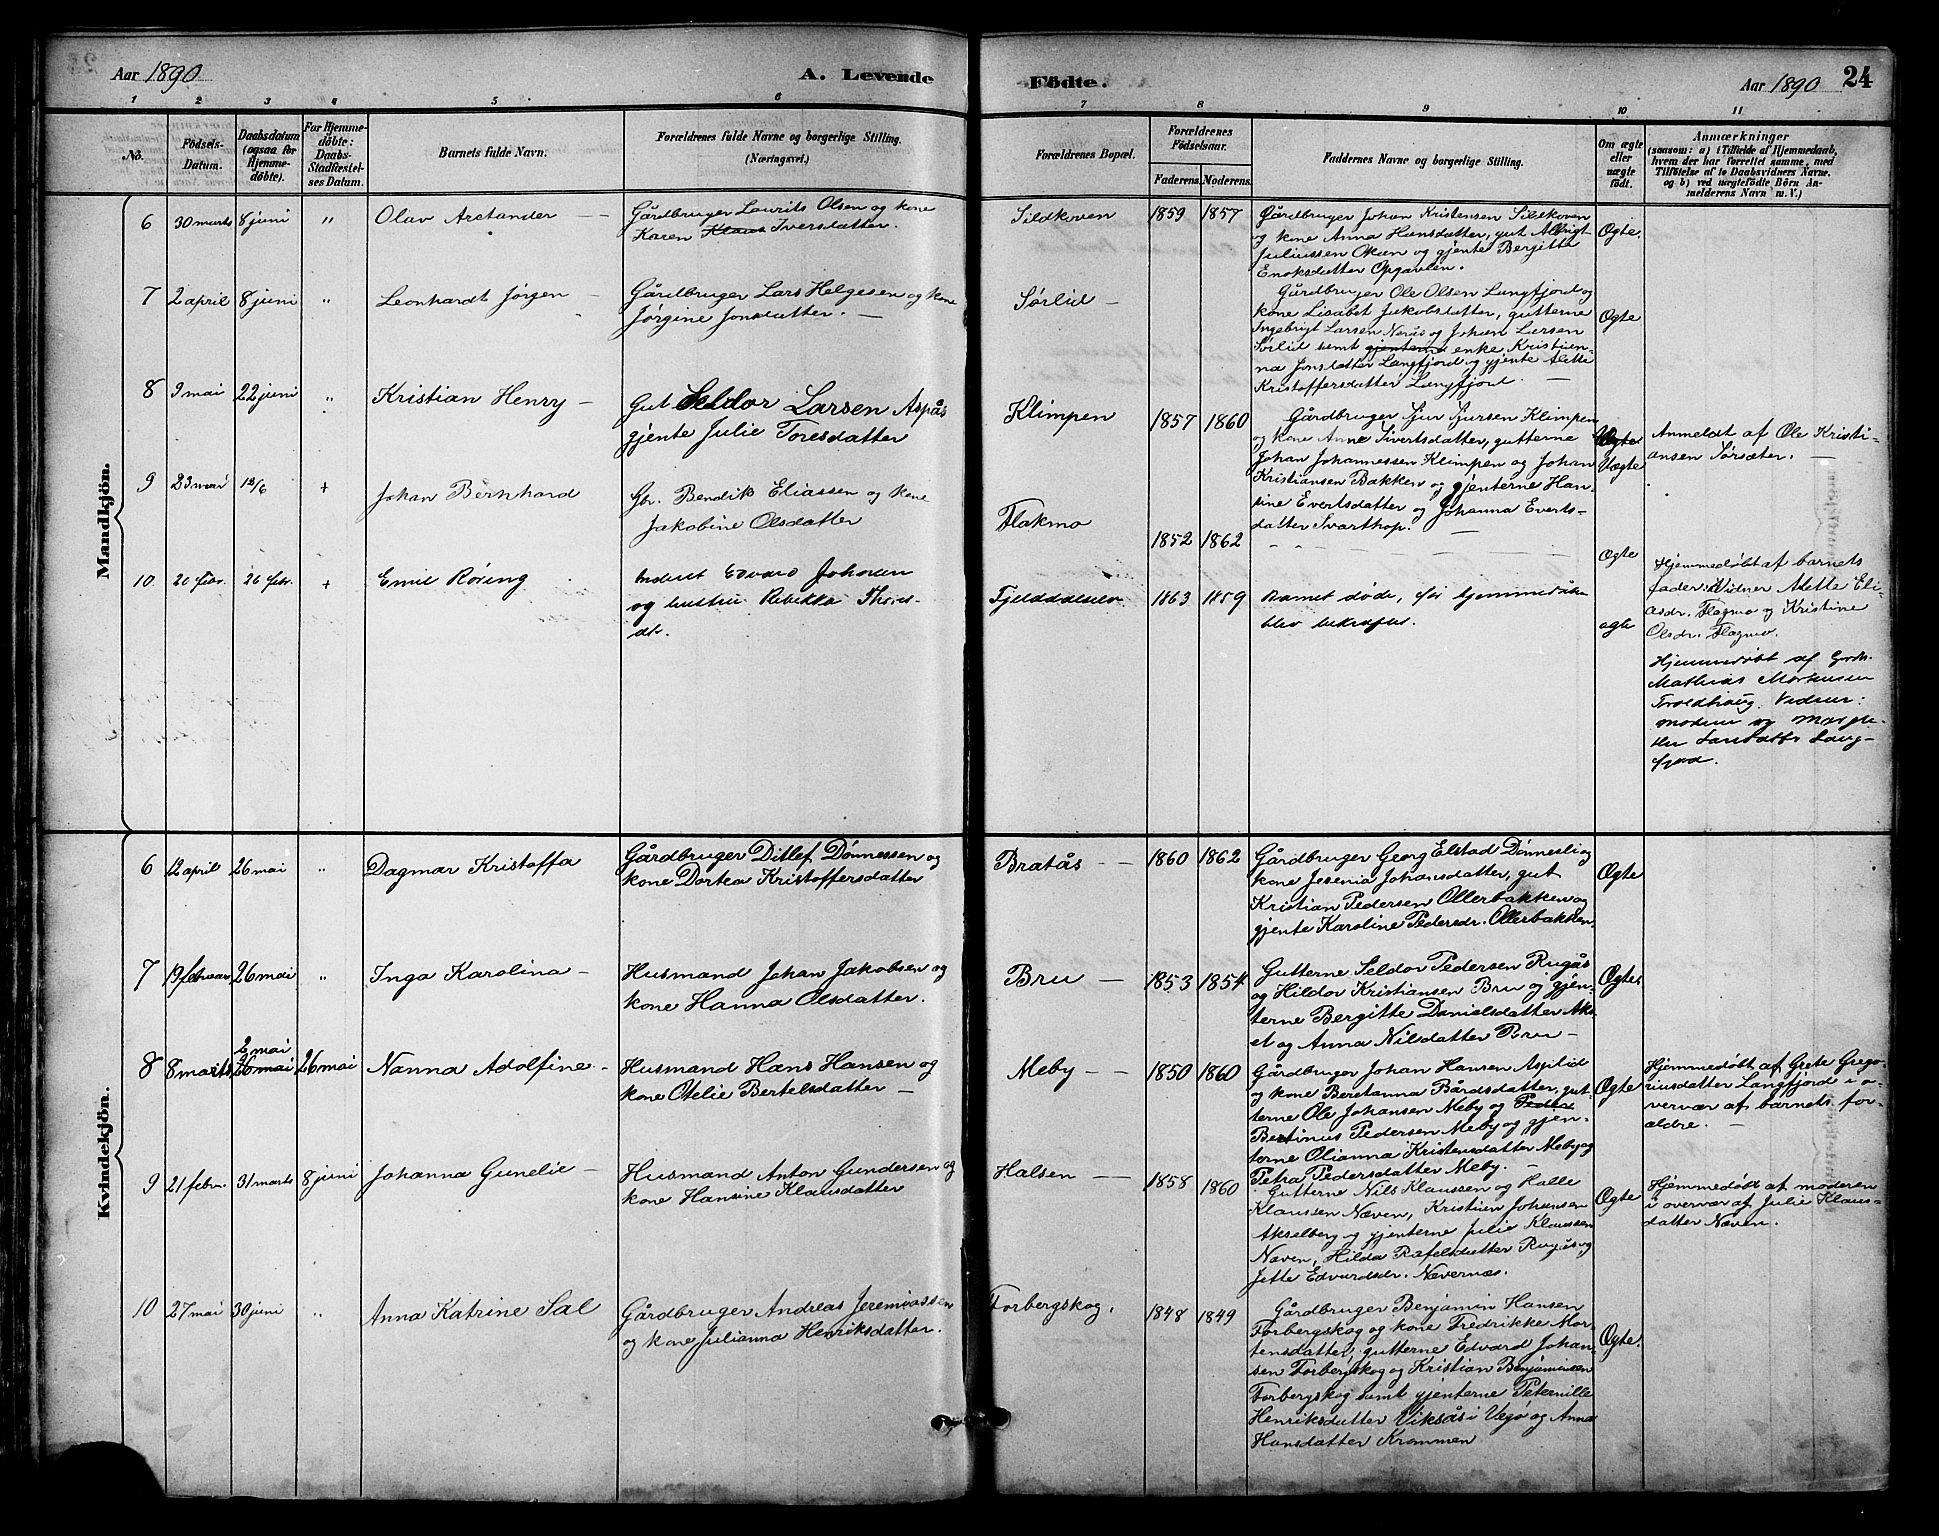 Aar 1890
A. Levende
Födte.
Aar 1890
24
1 2 3 4 5 6 7 8 9 10 11
No.
Födsels-
Datum.
Daabsdatum
(ogsaa for
Hjemme-
døbte).
For Hjemme-
døbte:
Daabs-
Stadfæstel-
ses Datum.
Barnets fulde Navn.
Forældrenes fulde Navne og borgerlige Stilling.
(Næringsvei.)
Forældrenes Bopæl.
Forældrenes
Födselsaar.
Faderens. Moderens.
Faddernes Navne og borgerlige Stilling.
Om ægte
eller
uægte
födt.
Anmærkninger
(saasom: a) i Tilfælde af Hjemmedaab,
hvem der har forrettet samme, med
Tilföielse af to Daabsvidners Navne,
og b) ved uægtefödte Börn An-
melderens Navn m. V.)
Mandkjön.
6 30 marts 8 juni " Olav Arctander
Gårdbruger Laurits Olsen og kone
Karen Klaus Iversdatter.
Sildkoven 1859 1857
Gårdbruger Johan Kristensen Sildkoven
og kone Anna Hansdatter, gut Albrigt
Juliussen Okan og gjente Bergitte
Enoksdatter Opgavlen.
Ægte.
7 2 april 8 juni " Leonhardt Jørgen —
Gårdbruger Lars Helgesen og kone
Jørgine Jonsdatter. —
Sørlid —
Gårdbruger Ole Olsen Langfjord og
kone Lisabet Jakobsdatter, gutterne
Ingebrigt Larsen Nerås og Johan Larsen
Sørlid samt gjenterne enke Kristien-
na Jonsdatter Langfjord og gjente Alette
Kristoffersdatter Langfjord. —
Ægte
8 9 mai 22 juni " Kristian Henry —
Gut Seldor Larsen Aspås
gjente Julie Toresdatter
Klimpen 1857 1860
Gårdbruger Sjur Sjursen Klimpen
og kone Anne Sivertsdatter, gutterne
Johan Johannessen Klimpen og Johan
Kristiansen Bakken og gjenterne Han-
sine Evertsdatter og Johanna Everts-
datter Svarthop.
Uægte
Anmeldt af Ole Kristi-
ansen Sørsæter. —
9 23 mai 12/6 + Johan Bernhard
Gbr. Bendik Eliassen og kone
Jakobine Olsdatter
Flakmo
1852 1862
Ægte
Hjemmedøbt af barnets
fader. Vidner Mette Eli-
asdr. Flagmo og Kristine
Olsdr. Flagmo.
10 20 febr. 26 febr. + Emil Røring
Inderst Edvard Johnsen
og hustru Rebekka Thores-
dtr.
Fjelddalselv. 1863 1859
Barnet døde, før hjemmedåben
blev bekræftet.
ægte
Hjemmedøbt af Gbr.
Mathias Mortensen
Troldhaug. Vidner:
moderen og Margre-
the Larsdatter Lang-
fjord.
Kvindekjön.
6 12 april 26 mai " Dagmar Kristoffa
Gårdbruger Ditlef Dønnessen og
kone Dortea Kristoffersdatter
Bratås — 1860 1862
Gårdbruger Georg Elstad Dønnesli og
kone Jesenia Johansdatter, gut
Kristian Pedersen Ollerbakken og
gjente Karoline Pedersdr. Ollerbakken.
Ægte
7 19 februar 26 mai " Inga Karolina —
Husmand Johan Jakobsen og
kone Hanna Olsdatter.
Bru — 1853 1854
Gutterne Seldor Pedersen Rugås
og Hildor Kristiansen Bru og gjen-
terne Bergitte Danielsdatter Aks-
et og Anna Nilsdatter Bru —
Ægte
2 mai
8 8 marts 26 mai 26 mai Nanna Adolfine —
Husmand Hans Hansen og
kone Otelie Bertelsdatter —
Meby — 1850 1860
Gårdbruger Johan Hansen Asplid
og kone Beretanna Bårdsdatter, gut-
terne Ole Johansen Meby og Peder
Bertinus Pedersen Meby og gjen-
terne Olianna Kristensdatter Meby og
Petra Pedersdatter Meby. —
Ægte
Hjemmedøbt af Grete Grego-
riusdatter Langfjord i o-
vervær af barnets for-
ældre. —
9 21 febr. 31 marts 8 juni Johanna Gunelie —
Husmand Anton Gundersen og
kone Hansine Klausdatter
Halsen — 1858 1860
Gutterne Nils Klaussen og Halle
Klaussen Næven, Kristian Johansen
Akselberg og gjenterne Julie Klaussen
Næven, Hilda Rafelsdatter Rugås og
Jette Edvardsdr. Nævernæs.
Ægte
Hjemmedøbt af moderen
i overvær af Julie Klaus-
datter Næven.
10 27 mai 30 juni " Anna Katrine Sal
Gårdbruger Andreas Jeremiassen
og kone Julianna Henriksdatter.
Forbergskog. 1848 1849
Gårdbruger Benjamin Hansen
Forbergskog og kone Fredrikke Mor-
tensdatter, gutterne Edvard Johan-
sen Forbergskog og Kristian Benjaminsen
Forbergskog samt gjenterne Peternille
Henriksdatter Viksås i Vegø og Anna
Hansdatter Krommen
Ægte.